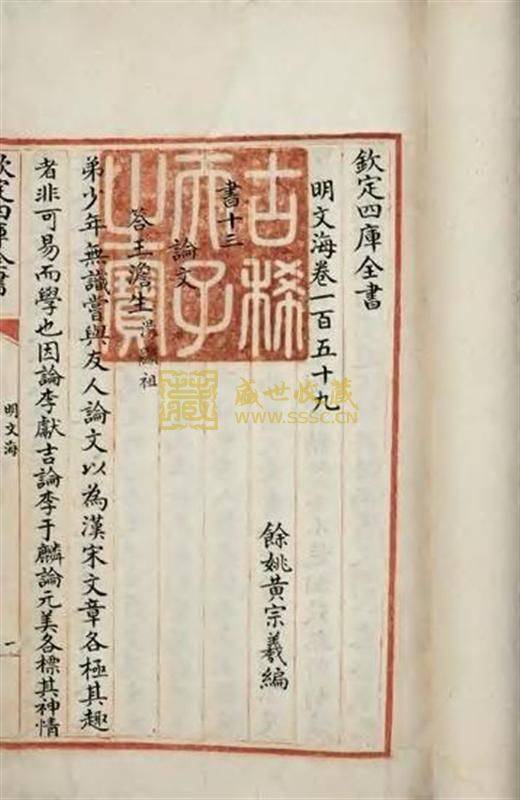 欽定四庫全書
明文海卷一百五十九
餘姚黃宗羲編
書十三
論文
答王澹生 湯顯祖
弟少年無識嘗與友人論文以為漢宋文章各極其趣
者非可易而學也因論李獻吉論李于麟論元美各標其神情
欽定四庫全書
明文海
一
古稀
天子
之寶
藏
盛世收藏
www.sssc.cn